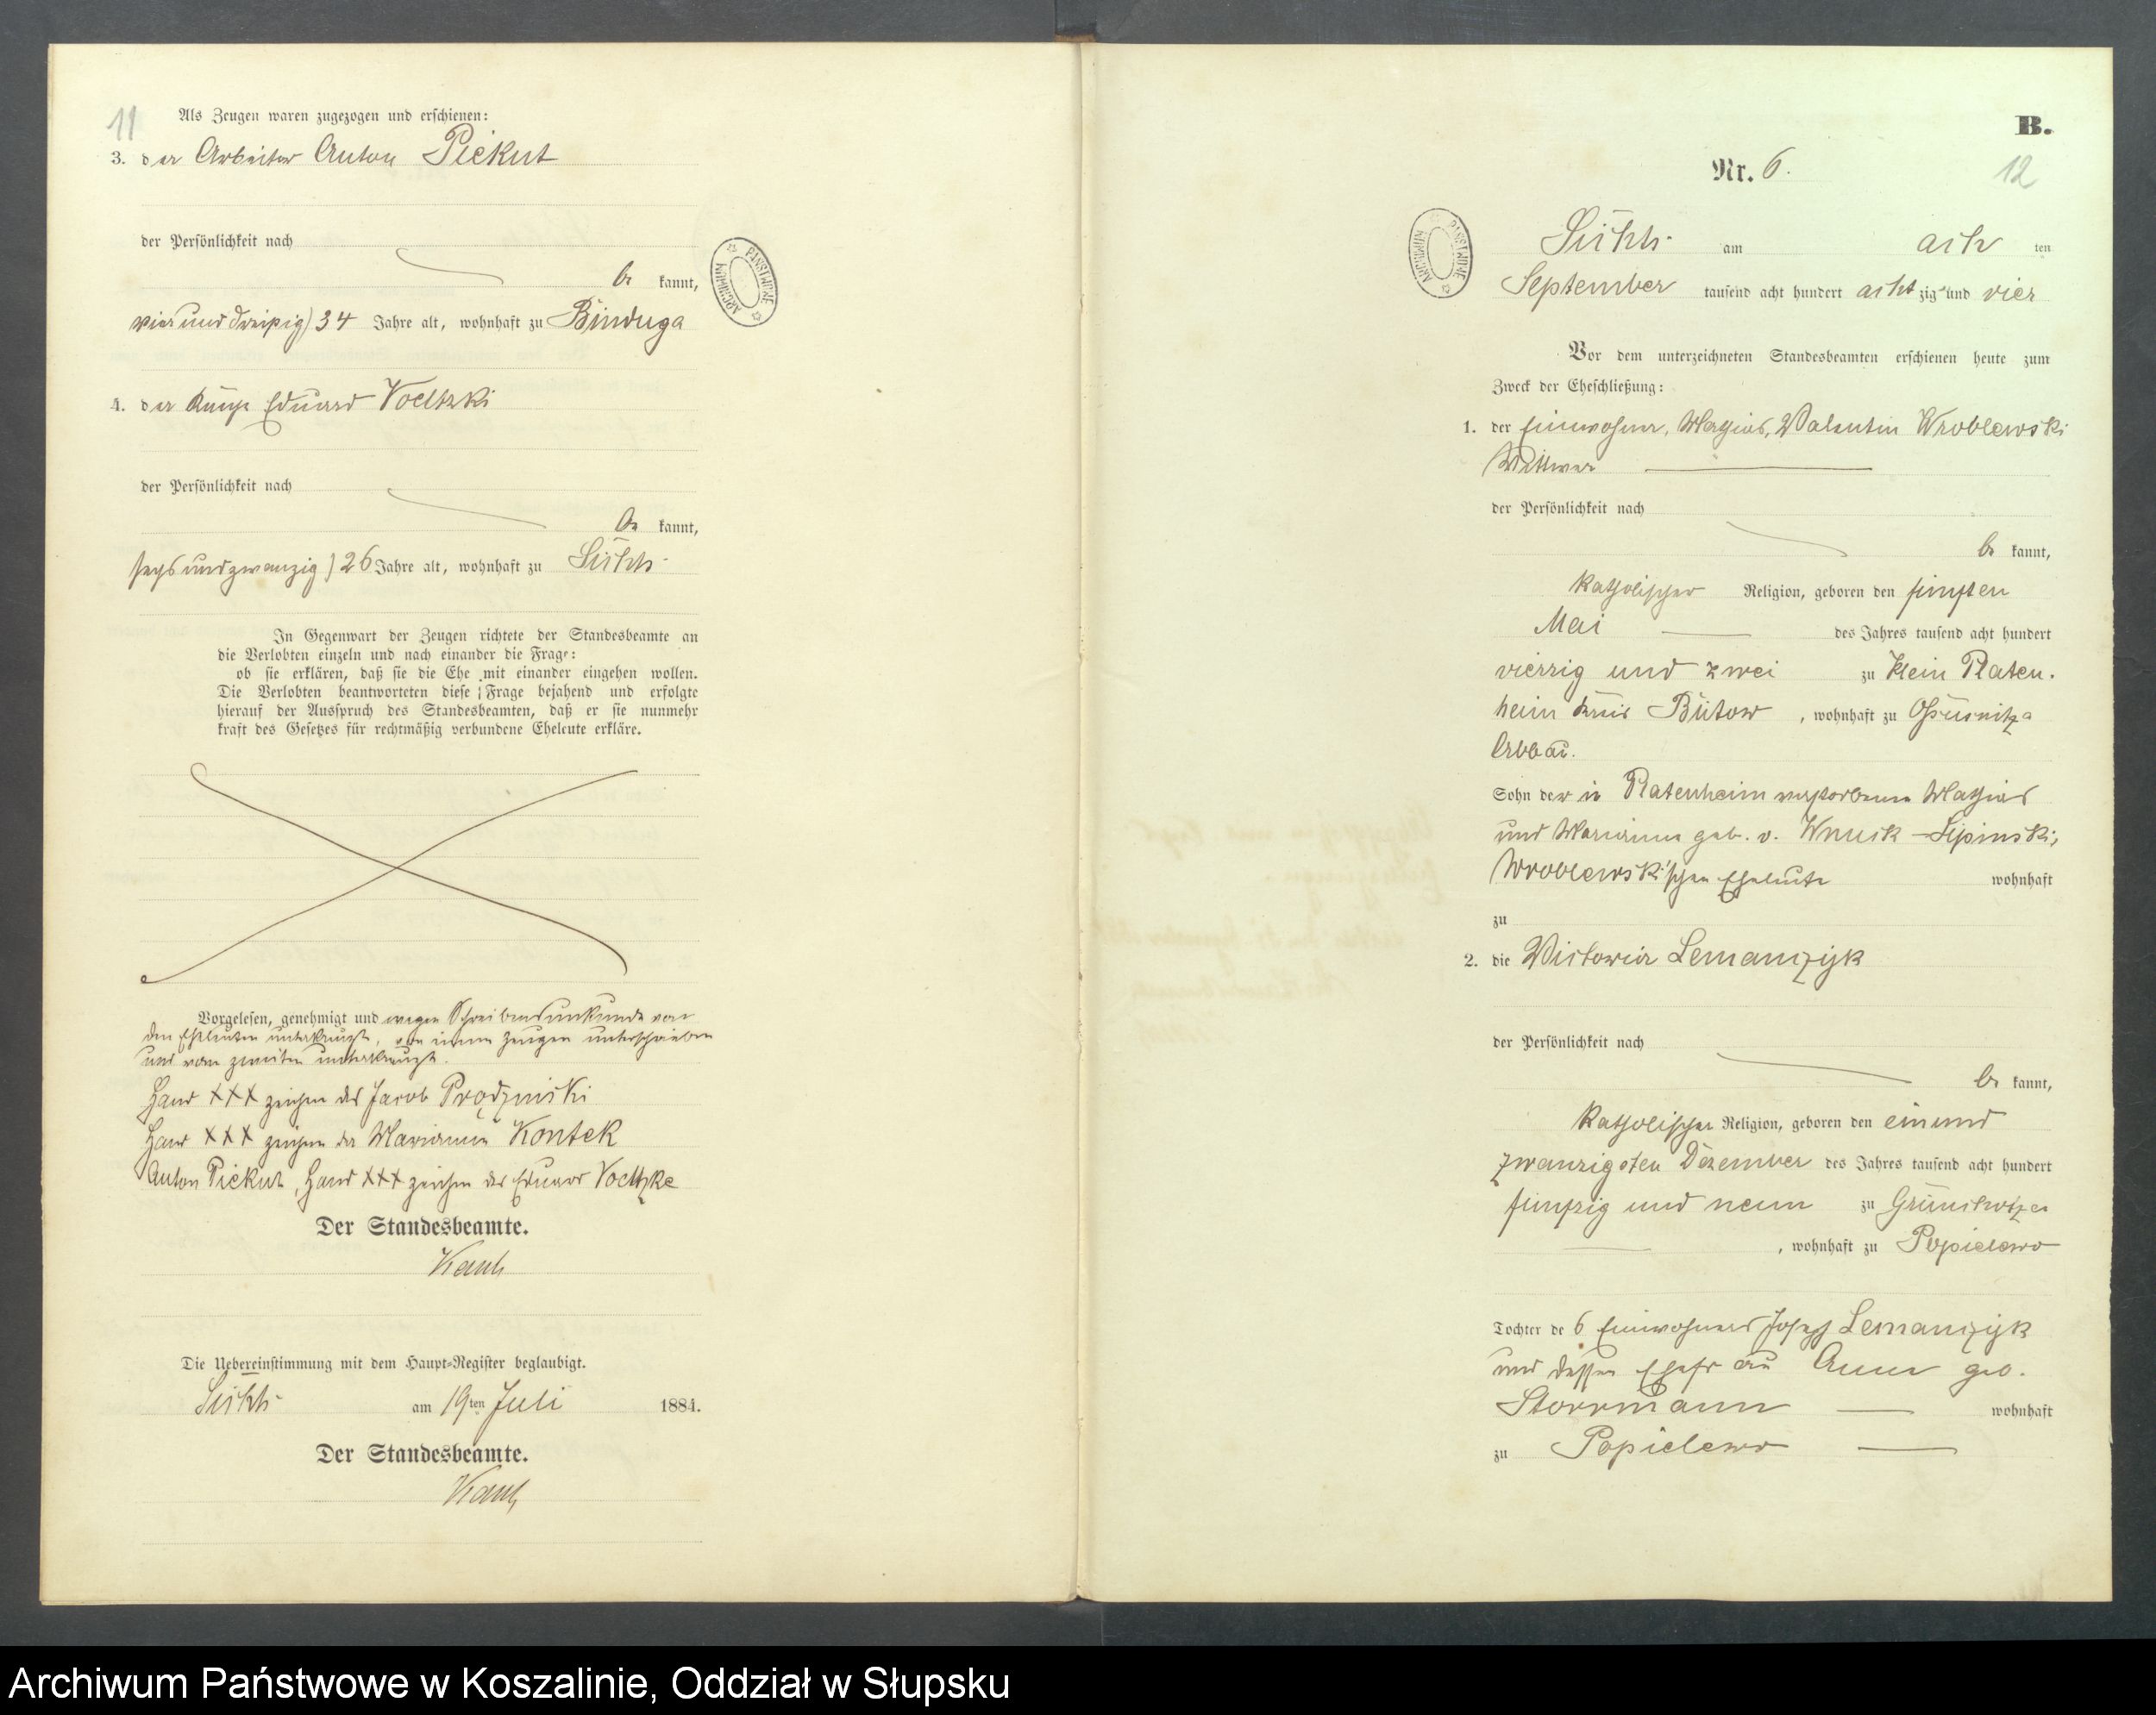 11
Als Zeugen waren zugezogen und erschienen:
3. der Arbeiter Anton Piekut
der Persönlichkeit nach
be kannt,
vier und dreißig) 34 Jahre alt, wohnhaft zu Binduga
4. der Eduard Voeltzki
der Persönlichkeit nach
be kannt,
sechs und zwanzig) 26 Jahre alt, wohnhaft zu
In Gegenwart der Zeugen richtete der Standesbeamte an
die Verlobten einzeln und nach einander die Frage:
ob sie erklären, daß sie die Ehe mit einander eingehen wollen.
Die Verlobten beantworteten diese Frage bejahend und erfolgte
hierauf der Ausspruch des Standesbeamten, daß er sie nunmehr
kraft des Gesetzes für rechtmäßig verbundene Eheleute erkläre.
Vorgelesen, genehmigt und wegen Schreibensunkunde von
den Eheleuten unterkreuzt, von einem Zeugen unterschrieben
und vom zweiten unterkreuzt.
Hand XXX zeichen des Jacob Prądzinski
Hand XXX zeichen der Marianna Kontek
Anton Piekut, Hand XXX zeichen des Eduard Voeltzke
Der Standesbeamte.
Die Uebereinstimmung mit dem Haupt-Register beglaubigt.
am 19ten Juli 1884.
Der Standesbeamte.
B.
Nr. 6.
12
am acht ten
September tausend acht hundert acht zig und vier
Vor dem unterzeichneten Standesbeamten erschienen heute zum
Zweck der Eheschließung:
1. der Einwohner, Mathias, Valentin Wroblewski
Wittwer
der Persönlichkeit nach
be kannt,
katholischer Religion, geboren den fünften
Mai des Jahres tausend acht hundert
vierzig und zwei zu Klein Platen-
heim Kreis Bütow, wohnhaft zu Ossusnitza
Abbau.
Sohn der in Platenheim verstorbenen Mathias
und Marianna geb. v. Wnuck-Lipinski,
Wroblewski'schen Eheleute wohnhaft
zu
2. die Victoria Lemanczyk
der Persönlichkeit nach
be kannt,
katholischer Religion, geboren den ein und
zwanzigsten Dezember des Jahres tausend acht hundert
fünfzig und neun zu
, wohnhaft zu Popielewo
Tochter des Einwohners Joseph Lemanczyk
und dessen Ehefrau Anna geb.
Storrmann wohnhaft
zu Popielewo
Archiwum Państwowe w Koszalinie, Oddział w Słupsku